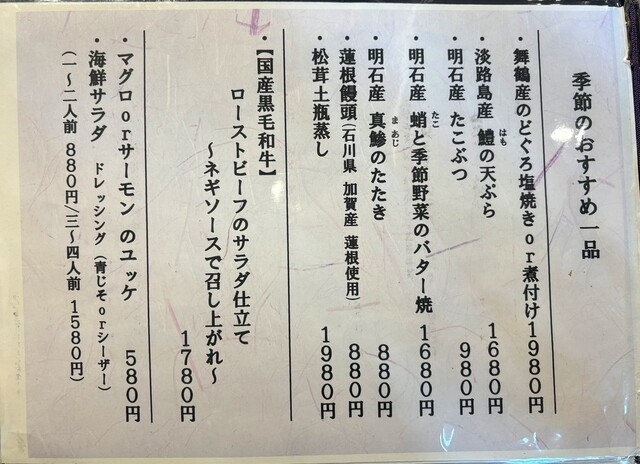 季節のおすすめ一品
・舞鶴産のどぐろ塩焼きor煮付け1980円
・淡路島産 鱧の天ぷら 1680円
はも
・明石産 たこぶつ 980円
・明石産 蛸と季節野菜のバター焼 1680円
たこ
・明石産 真鯵のたたき 880円
まあじ
・蓮根饅頭(石川県 加賀産 蓮根使用) 880円
・松茸土瓶蒸し 1980円
・【国産黒毛和牛】
ローストビーフのサラダ仕立て
～ネギソースで召し上がれ～
1780円
・マグロorサーモン のユッケ 580円
・海鮮サラダ ドレッシング(青じそorシーザー)
(一～二人前 880円/三～四人前 1580円)